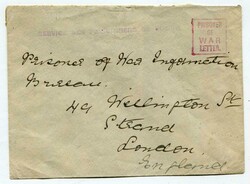 PRISONER
OF
WAR
LETTER.
Prisoner of War Information
Bureau.
49 Wellington St
Strand
London
England